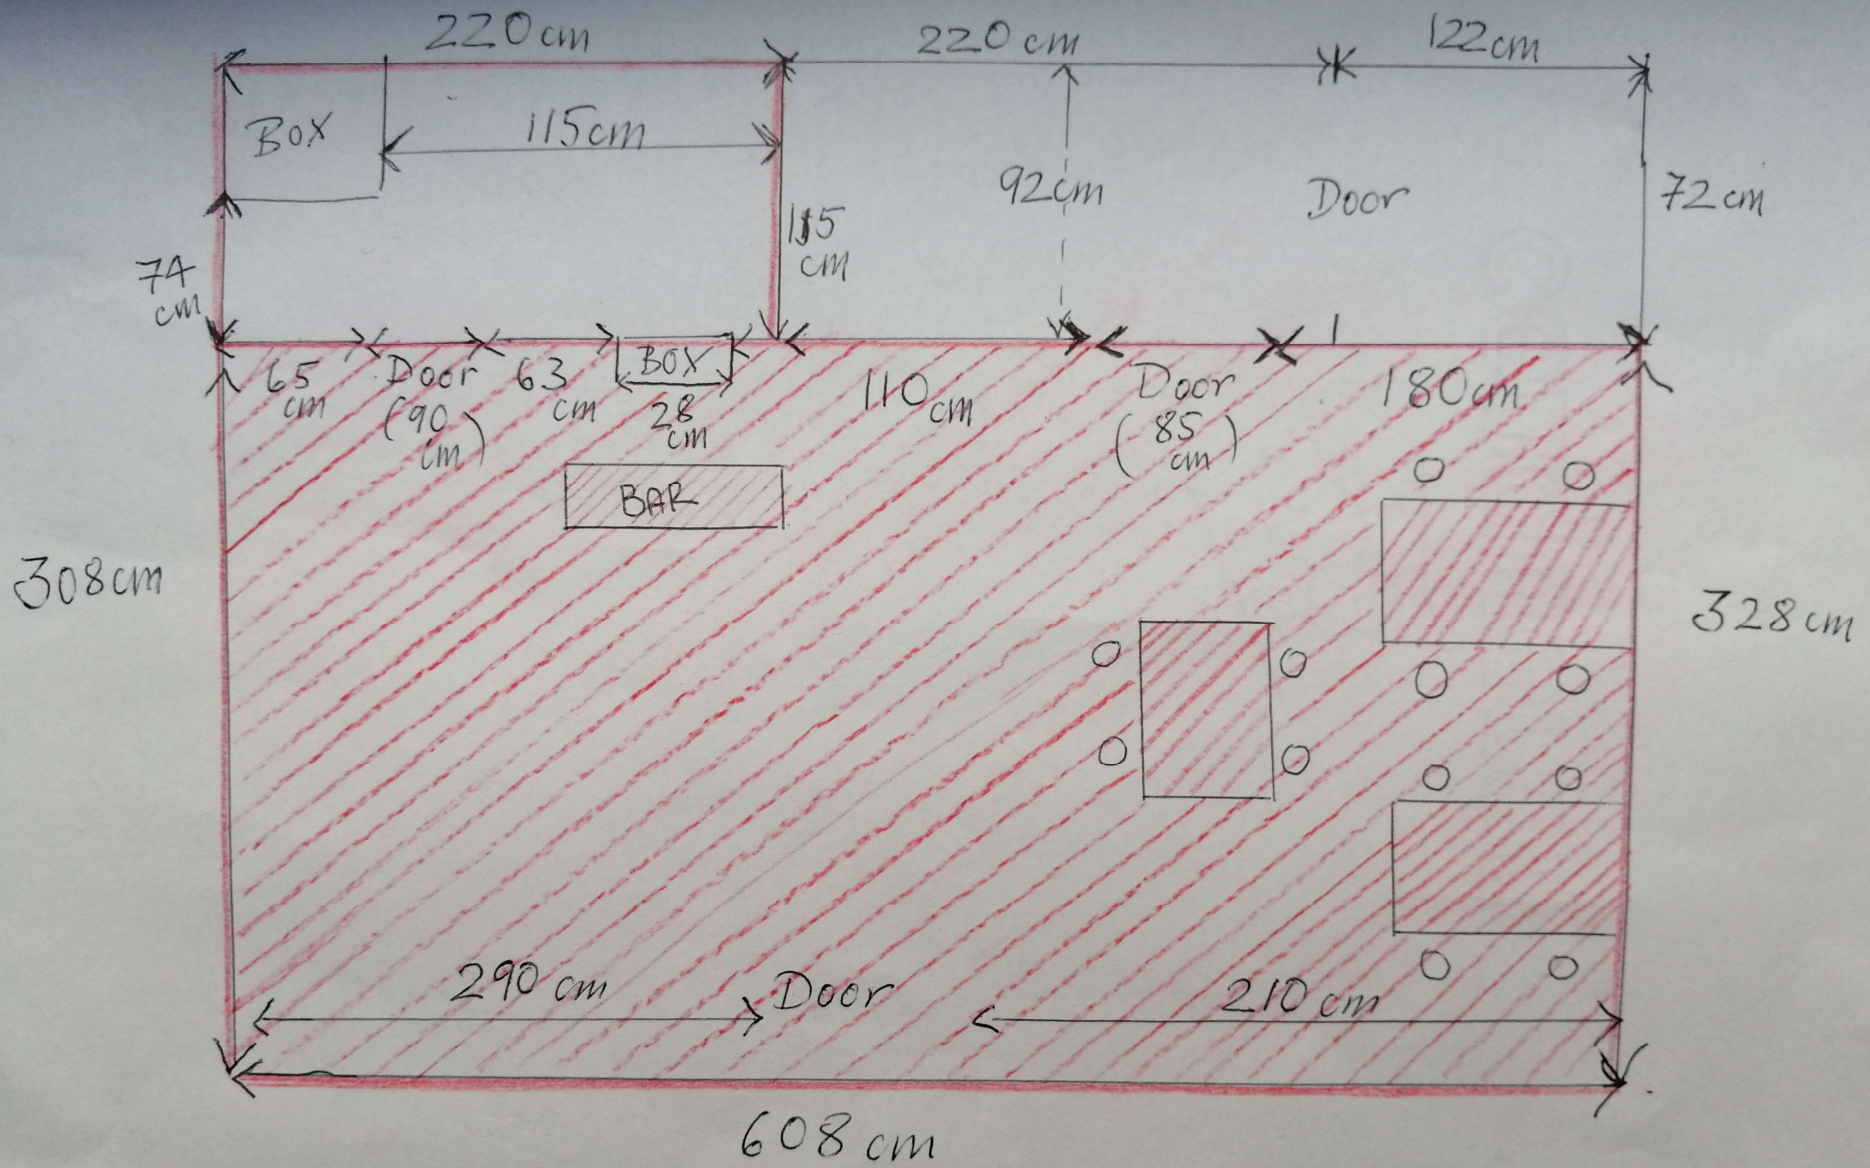 220cm
220 cm
122cm
BOX
115cm
92cm
Door
72 cm
115
cm
74
cm
65
cm
Door
(90
cm)
63
cm
BOX
28
cm
110 cm
Door
(85
cm)
180cm
BAR
308cm
328cm
290 cm
Door
210 cm
608 cm